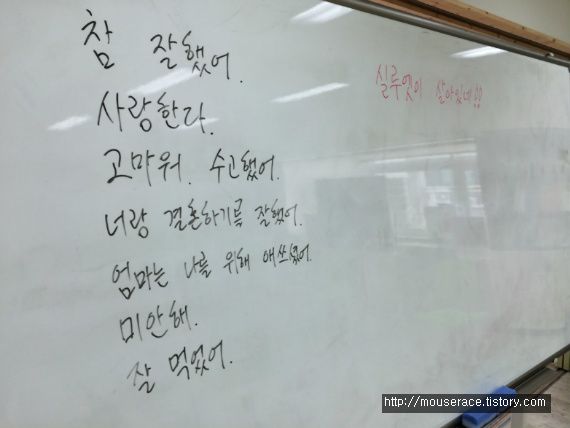 참 잘했어.
사랑한다.
고마워. 수고했어.
너랑 결혼하기를 잘했어.
엄마는 나를 위해 애쓰셨어.
미안해.
잘 먹었어.
실루엣이 살아있네!!
http://mouserace.tistory.com